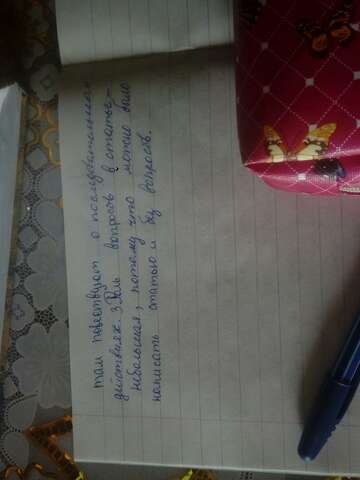 там повествуют о последовательных
действиях. 3 Роль вопросов в статье –
небольшая, потому что можно было
написать статью и без вопросов.